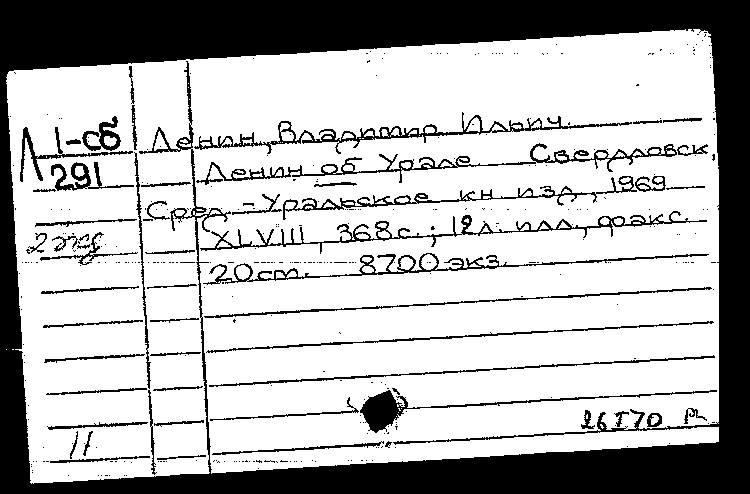 Л 1-сб Ленин, Владимир Ильич.
291 Ленин об Урале. Свердловск,
Сред.-Уральское кн изд, 1969
2 экз XLVIII, 368с.; 12л. илл, факс.
20см. 8700 экз.
11 26 I 70